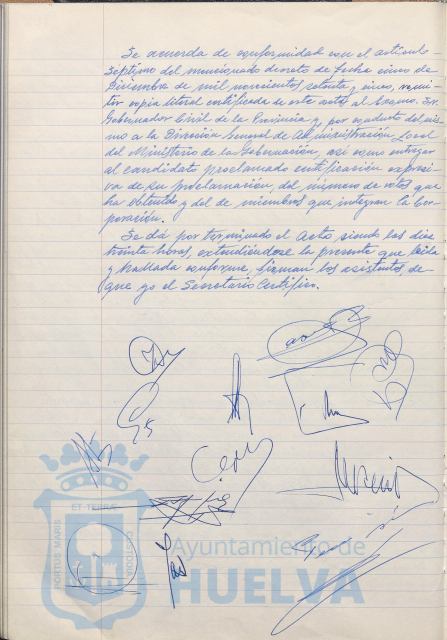 Se acuerda de conformidad con el articulo
septimo del mencionado decreto de fecha cinco de
Diciembre de mil novecientos setenta y cinco, remi-
tir copia literal certificada de este acto al Excmo. Sr.
Gobernador Civil de la Provincia y, por conducto del mis-
mo a la Dirección General de Administración Local
del Ministerio de la Gobernación, así como entregar
al candidato proclamado certificación expresi-
va de su proclamación, del número de votos que
ha obtenido y del de miembros que integran la Cor-
poración.
Se dá por terminado el Acto, siendo las diez
treinta horas, extendiéndose la presente que leida
y hallada conforme, firman los asistentes de
que yo el Secretario Certifico.
ET TERRAE
PORTUS MARIS
CUSTODIA
Ayuntamiento de
HUELVA